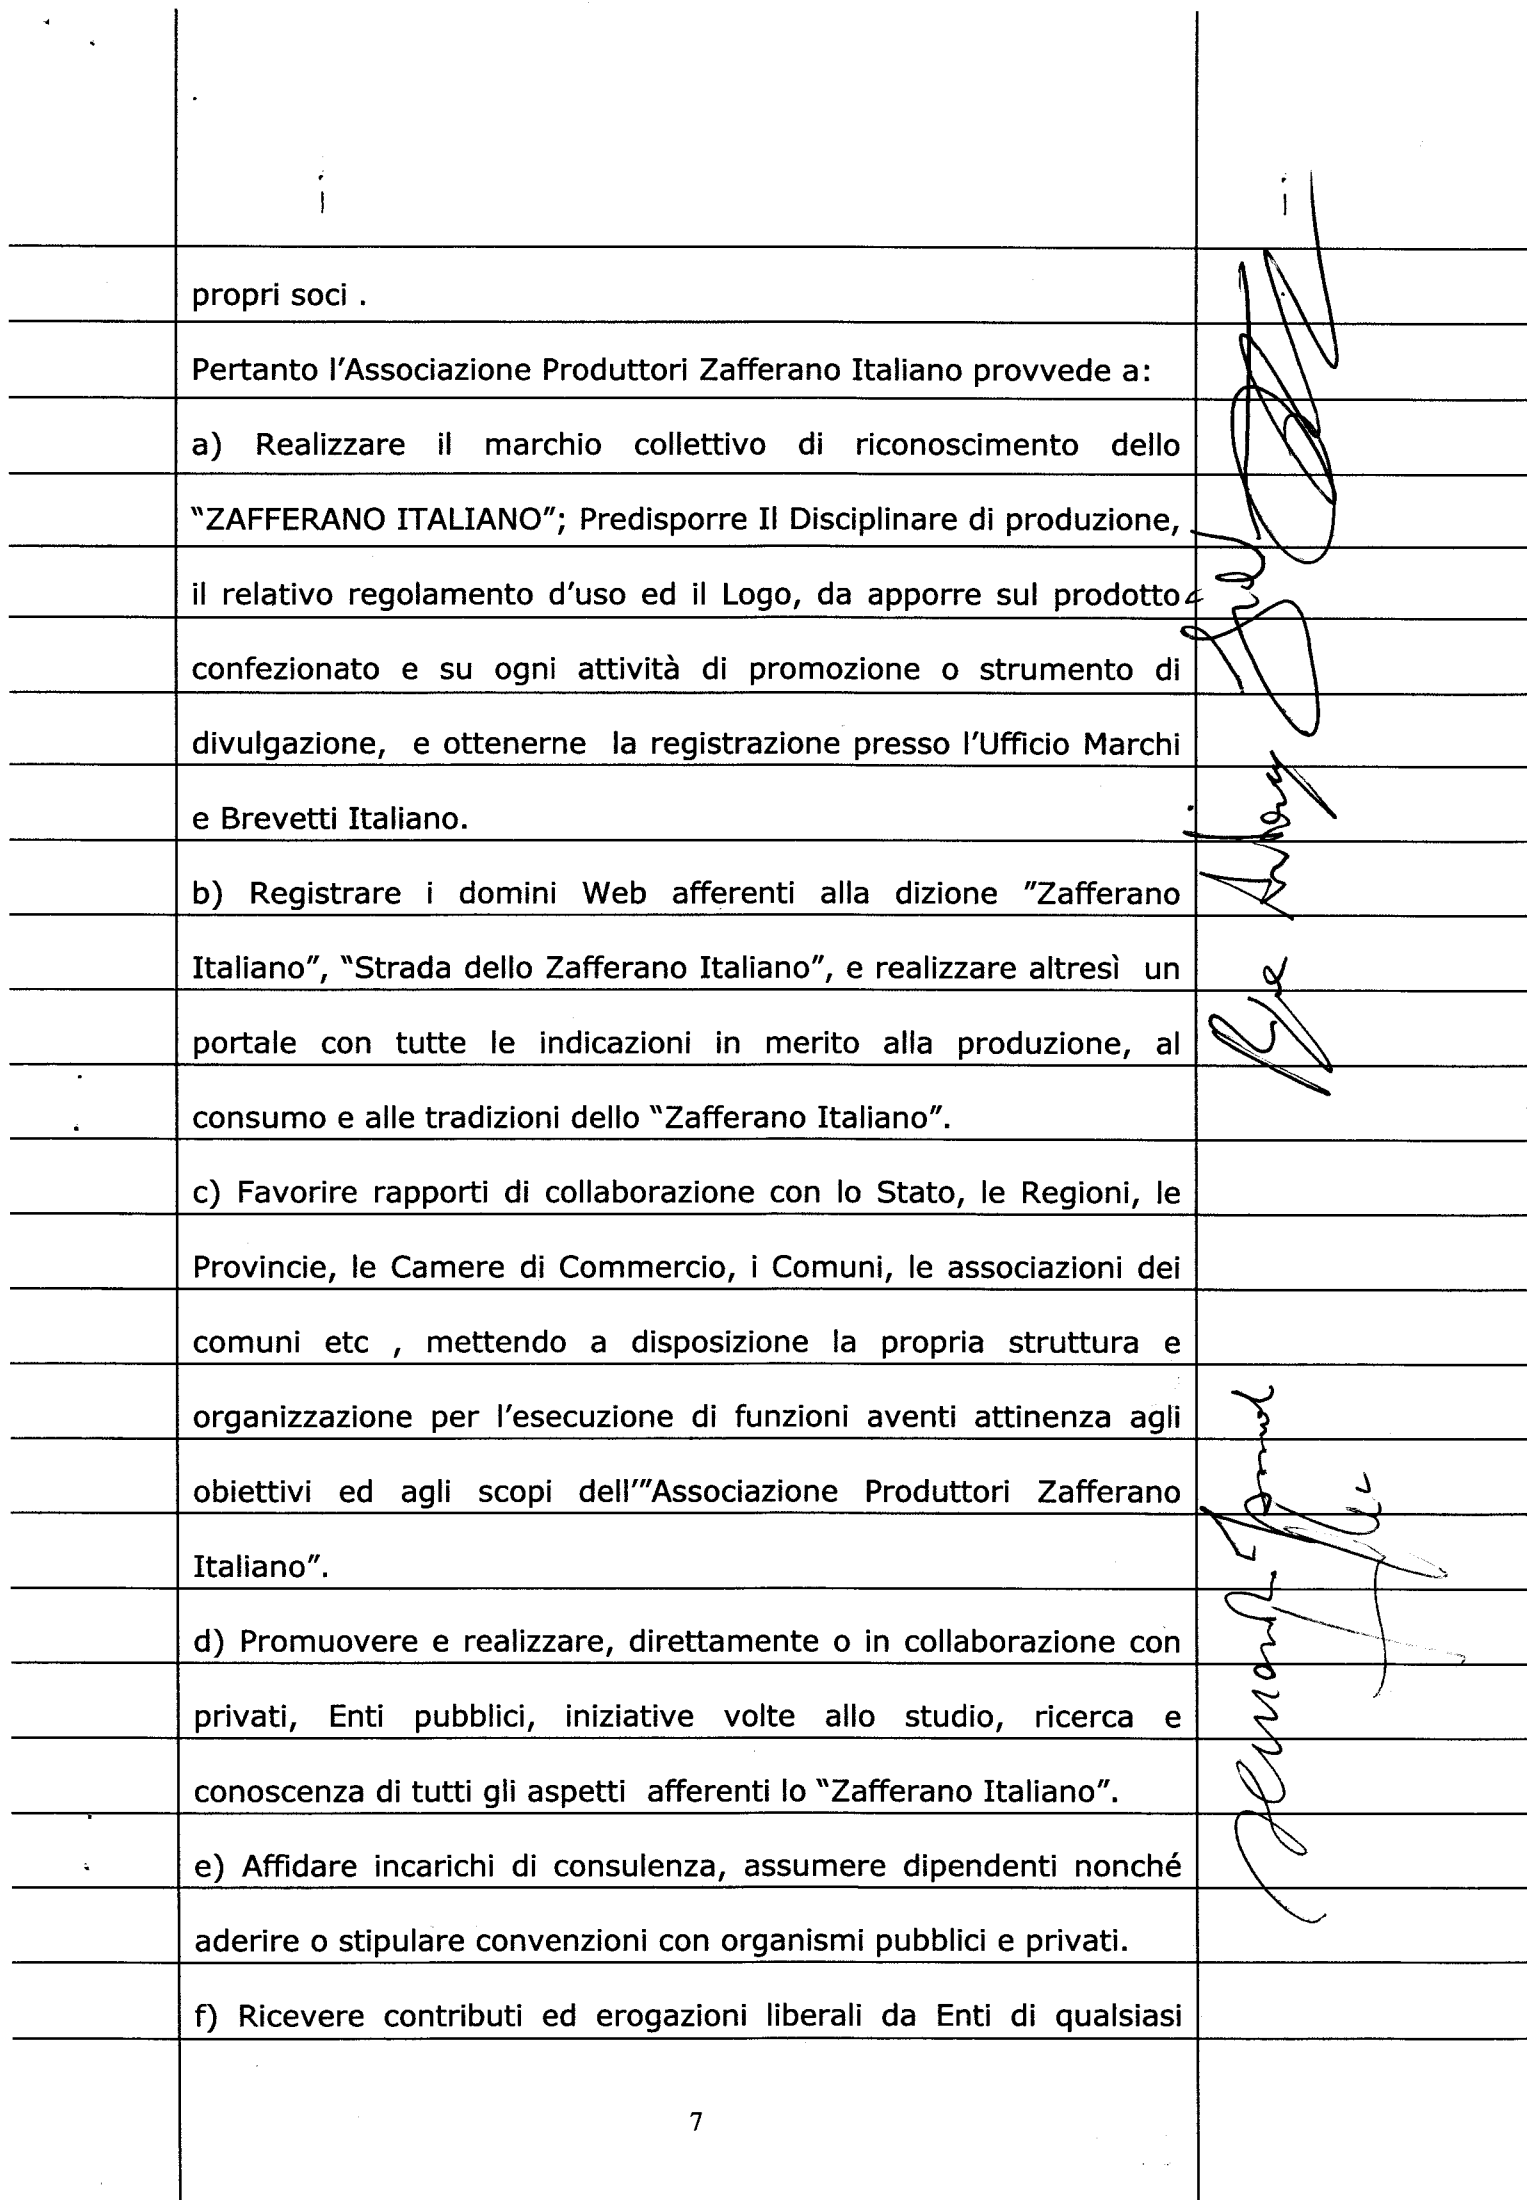 propri soci .
Pertanto l'Associazione Produttori Zafferano Italiano provvede a:
a) Realizzare il marchio collettivo di riconoscimento dello
“ZAFFERANO ITALIANO”; Predisporre Il Disciplinare di produzione,
il relativo regolamento d'uso ed il Logo, da apporre sul prodotto
confezionato e su ogni attività di promozione o strumento di
divulgazione, e ottenerne la registrazione presso l'Ufficio Marchi
e Brevetti Italiano.
b) Registrare i domini Web afferenti alla dizione ”Zafferano
Italiano”, “Strada dello Zafferano Italiano”, e realizzare altresì un
portale con tutte le indicazioni in merito alla produzione, al
consumo e alle tradizioni dello “Zafferano Italiano”.
c) Favorire rapporti di collaborazione con lo Stato, le Regioni, le
Provincie, le Camere di Commercio, i Comuni, le associazioni dei
comuni etc , mettendo a disposizione la propria struttura e
organizzazione per l'esecuzione di funzioni aventi attinenza agli
obiettivi ed agli scopi dell'”Associazione Produttori Zafferano
Italiano”.
d) Promuovere e realizzare, direttamente o in collaborazione con
privati, Enti pubblici, iniziative volte allo studio, ricerca e
conoscenza di tutti gli aspetti afferenti lo “Zafferano Italiano”.
e) Affidare incarichi di consulenza, assumere dipendenti nonché
aderire o stipulare convenzioni con organismi pubblici e privati.
f) Ricevere contributi ed erogazioni liberali da Enti di qualsiasi
7